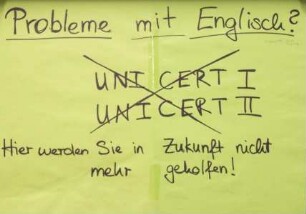 Probleme mit Englisch?
UNI CERT I
UNICERT II
Hier werden Sie in Zukunft nicht
mehr geholfen!